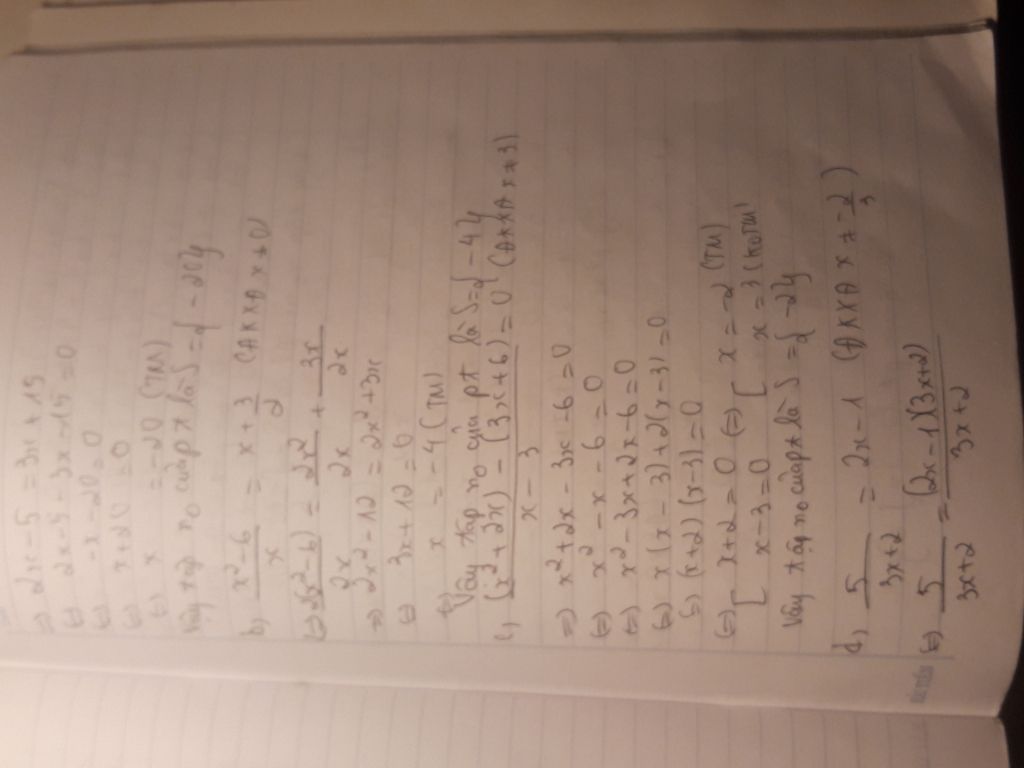 => 2x - 5 = 3x + 15
(=) 2x - 5 - 3x - 15 = 0
(=) -x - 20 = 0
(=) x + 20 = 0
(=) x = -20 (TM)
Vậy tập no của pt là S = {-20}
b, \frac{x² - 6}{x} = x + \frac{3}{2} (ĐKXĐ x ≠ 0)
(=) \frac{2(x² - 6)}{2x} = \frac{2x²}{2x} + \frac{3x}{2x}
=> 2x² - 12 = 2x² + 3x
(=) 3x + 12 = 0
(=) x = -4 (TM)
Vậy tập no của pt là S = {-4}
c, \frac{(x² + 2x) - (3x + 6)}{x - 3} = 0 (ĐKXĐ x ≠ 3)
=> x² + 2x - 3x - 6 = 0
(=) x² - x - 6 = 0
(=) x² - 3x + 2x - 6 = 0
(=) x(x - 3) + 2(x - 3) = 0
(=) (x + 2)(x - 3) = 0
(=) [ x + 2 = 0 (=) [ x = -2 (TM)
[ x - 3 = 0 [ x = 3 (KoTM)
Vậy tập no của pt là S = {-2}
d, \frac{5}{3x + 2} = 2x - 1 (ĐKXĐ x ≠ \frac{-2}{3})
(=) \frac{5}{3x + 2} = \frac{(2x - 1)(3x + 2)}{3x + 2}